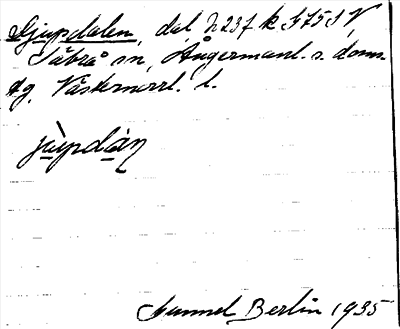 Djupdalen, dal h 237 k S 75 S V
Säbrå sn, Ångermanl. s. doms-
ag. Västernorrl. l.
jùpdàn
Gunnel Berlin 1935